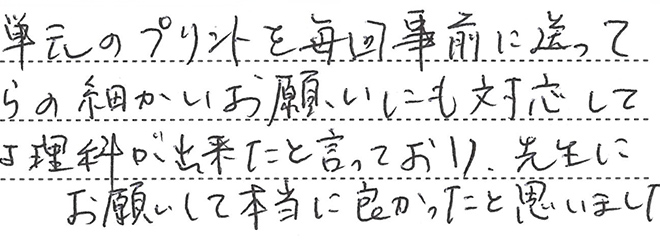 単元のプリントを毎回事前に送って
らの細かいお願いにも対応して
は理科が出来たと言っており、先生に
お願いして本当に良かったと思いまし